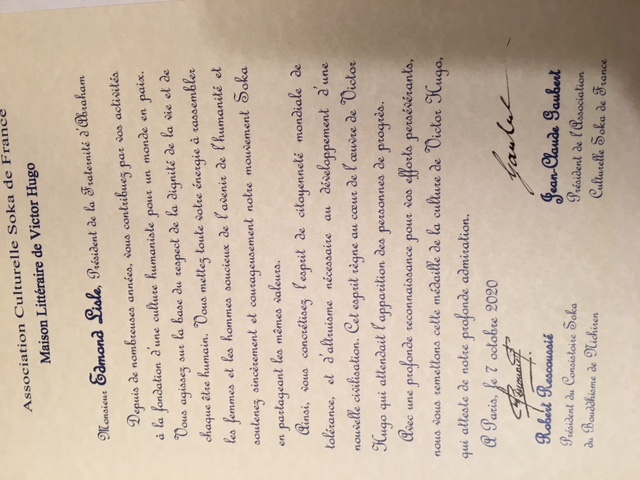 Association Culturelle Soka de France
Maison Littéraire de Victor Hugo
Monsieur Edmond Lisle, Président de la Fraternité d'Abraham
Depuis de nombreuses années, vous contribuez par vos activités
à la fondation d'une culture humaniste pour un monde en paix.
Vous agissez sur la base du respect de la dignité de la vie et de
chaque être humain. Vous mettez toute votre énergie à rassembler
les femmes et les hommes soucieux de l'avenir de l'humanité et
soutenez sincèrement et courageusement notre mouvement Soka
en partageant les mêmes valeurs.
Ainsi, vous concrétisez l'esprit de citoyenneté mondiale de
tolérance, et d'altruisme nécessaire au développement d'une
nouvelle civilisation. Cet esprit règne au cœur de l'œuvre de Victor
Hugo qui attendait l'apparition des personnes de progrès.
Avec une profonde reconnaissance pour vos efforts persévérants,
nous vous remettons cette médaille de la culture de Victor Hugo,
qui atteste de notre profonde admiration.
A Paris, le 7 octobre 2020
Robert Rescoussié
Président du Consistoire Soka
du Bouddhisme de Nichiren
Gaubert
Jean-Claude Gaubert
Président de l'Association
Culturelle Soka de France